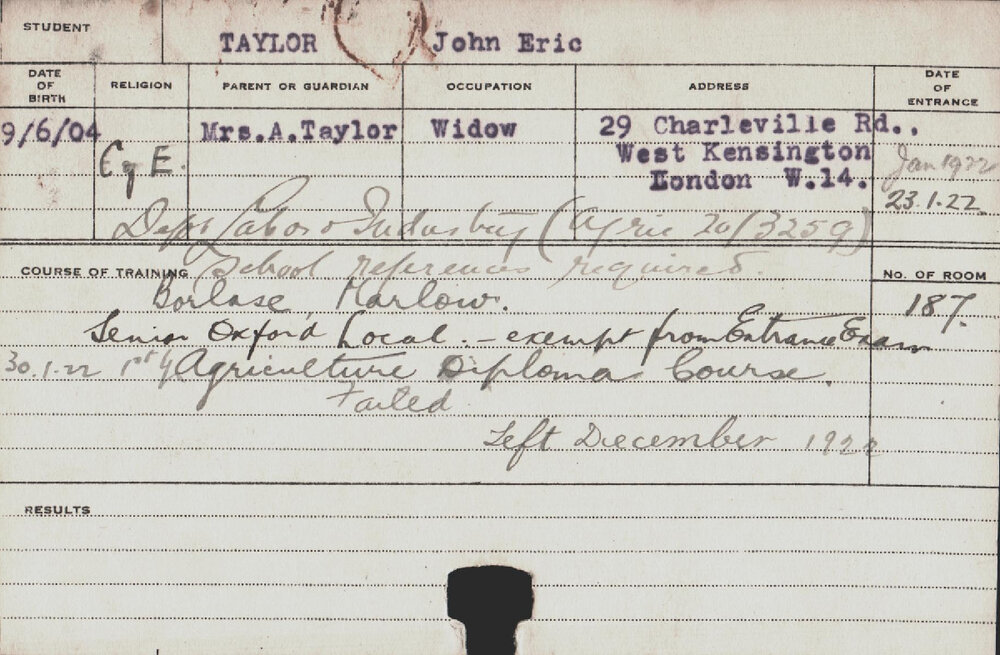 STUDENT TAYLOR John Eric
DATE OF BIRTH RELIGION PARENT OR GUARDIAN OCCUPATION ADDRESS DATE OF ENTRANCE
9/6/04 Mrs.A.Taylor Widow 29 Charleville Rd.,
C of E. West Kensington Jan 1922
London W.14. 23.1.22
Dept Labor & Industry (Agric 20/3259)
COURSE OF TRAINING School references required No. OF ROOM
Borlase Marlow. 187.
Senior Oxford Local. - exempt from Entrance Exam
30.1.22 1st Y Agriculture Diploma Course.
Failed
Left December 1922
RESULTS